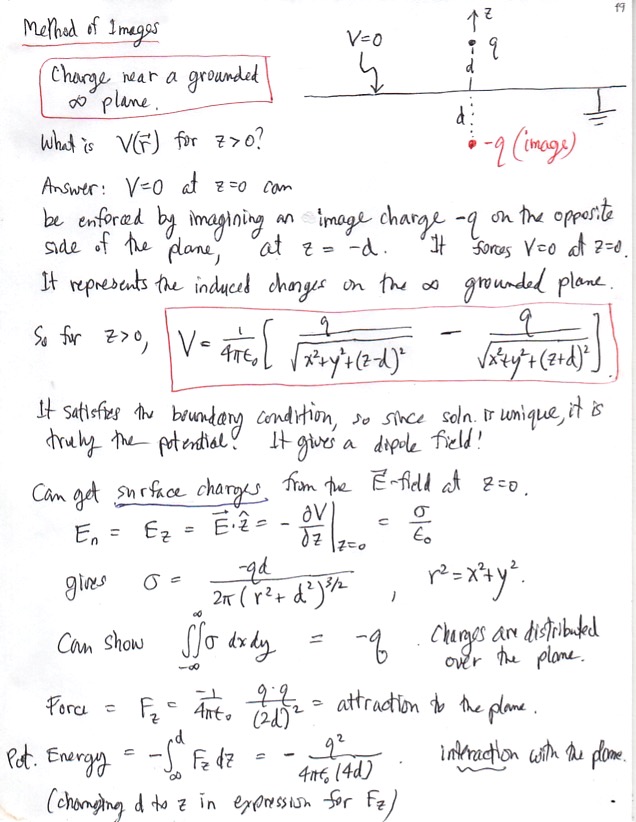 19
Method of Images
Charge near a grounded
∞ plane.
V=0
z
q
d
d
-q (image)
What is V(r⃗) for z>0?
Answer: V=0 at z=0 can
be enforced by imagining an image charge -q on the opposite
side of the plane, at z = -d. It forces V=0 at z=0.
It represents the induced charges on the ∞ grounded plane.
So for z>0, V = 1/4πε₀ [ q/√(x²+y²+(z-d)²) - q/√(x²+y²+(z+d)²) ]
It satisfies the boundary condition, so since soln. is unique, it is
truly the potential! It gives a dipole field!
Can get surface charges from the E⃗-field at z=0.
Eₙ = E_z = E⃗·ẑ = - ∂V/∂z |z=0 = σ/ε₀
gives σ = -qd / 2π(r²+d²)^3/2 , r²=x²+y².
Can show ∫∫_{-∞}^{∞} σ dxdy = -q. Charges are distributed
over the plane.
Force = F_z = -1/4πε₀ q·q/(2d)² = attraction to the plane.
Pot. Energy = -∫_∞^d F_z dz = - q²/4πε₀(4d) . interaction with the plane.
(changing d to z in expression for F_z)